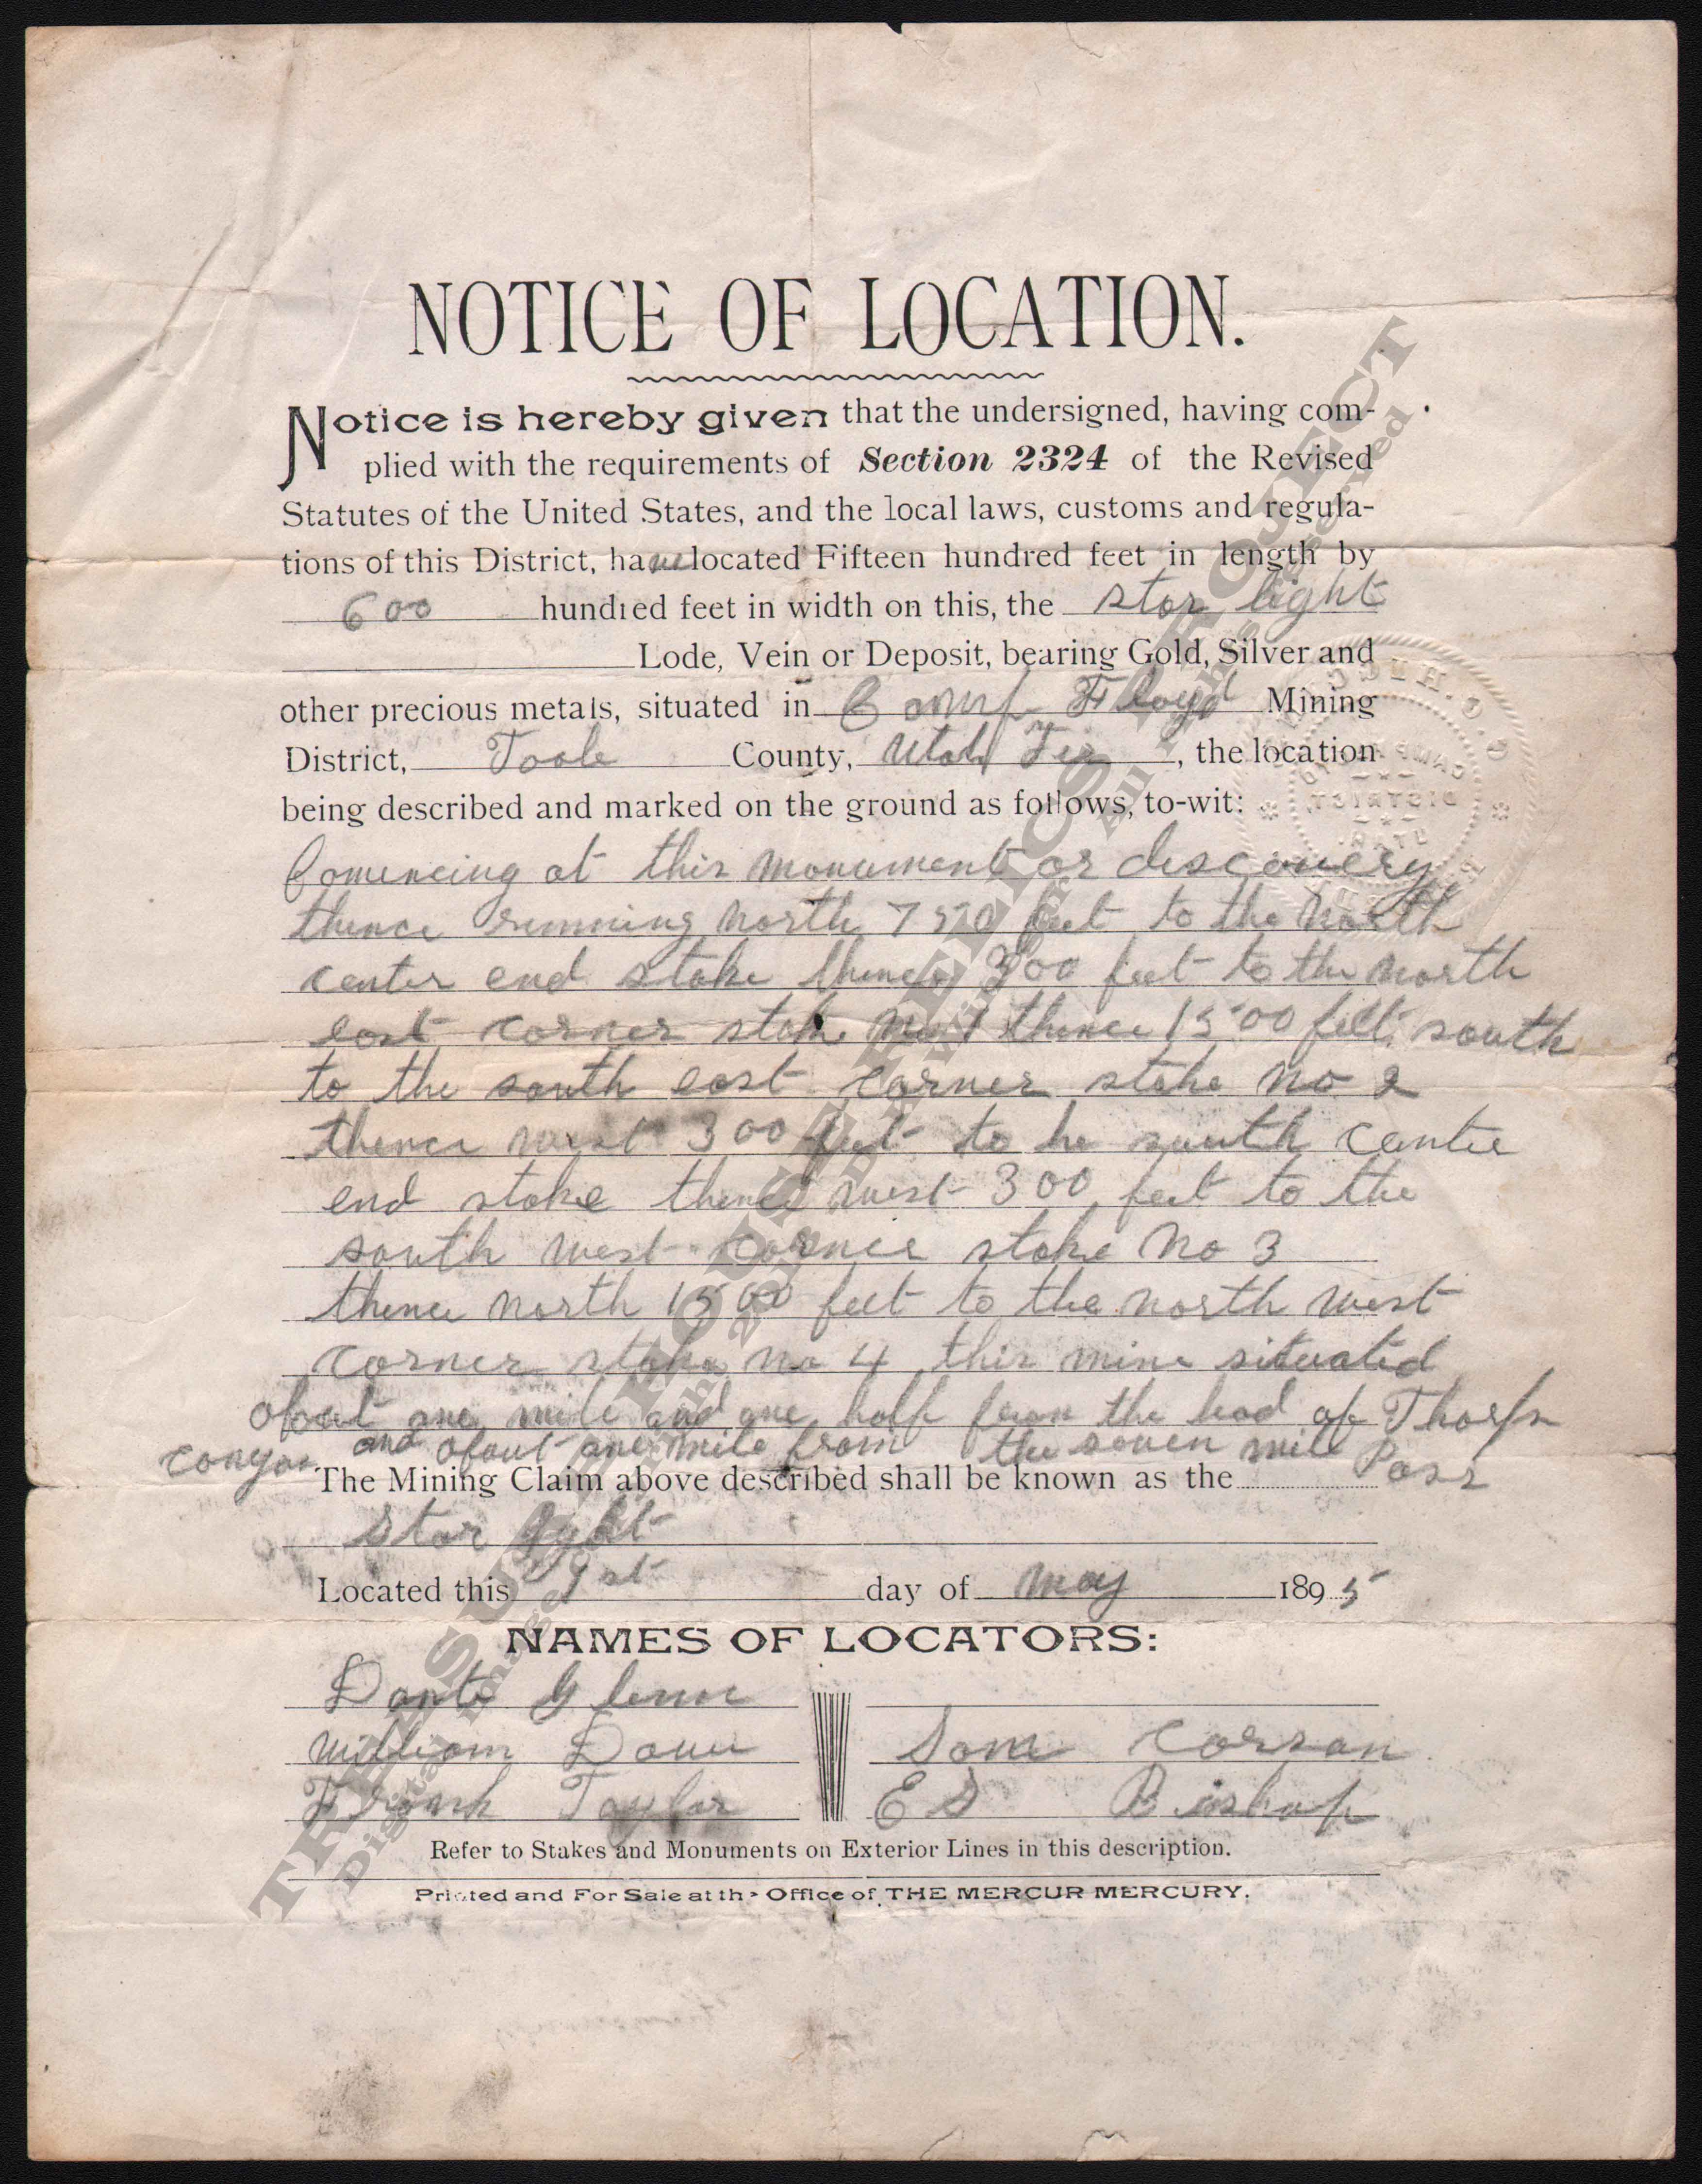 NOTICE OF LOCATION.
Notice is hereby given that the undersigned, having com-
plied with the requirements of Section 2324 of the Revised
Statutes of the United States, and the local laws, customs and regula-
tions of this District, have located Fifteen hundred feet in length by
600 hundred feet in width on this, the star light
Lode, Vein or Deposit, bearing Gold, Silver and
other precious metals, situated in Camp Floyd Mining
District, Toole County, Utah Ter, the location
being described and marked on the ground as follows, to-wit:
Comencing at this monument or discovery
thence running north 750 feet to the north
center end stake thence 300 feet to the north
east corner stake no 1 thence 1500 feet south
to the south east corner stake no 2
thence west 300 feet to he south center
end stake thence west 300 feet to the
south west corner stake no 3
thence north 1500 feet to the north west
corner stake no 4 this mine situated
about one mile and one half from the head of Thorps
canyon and about one mile from the seven mile Pass
The Mining Claim above described shall be known as the
Star light
Located this 1st day of may 1895
NAMES OF LOCATORS:
Dante
William Sam Corsan
Frank Taylor ED Bishop
Refer to Stakes and Monuments on Exterior Lines in this description.
Printed and For Sale at the Office of THE MERCUR MERCURY.
CAMP FLOYD
DISTRICT
UTAH
TREASURE HOUSE RELICS PROJECT
All Rights Reserved